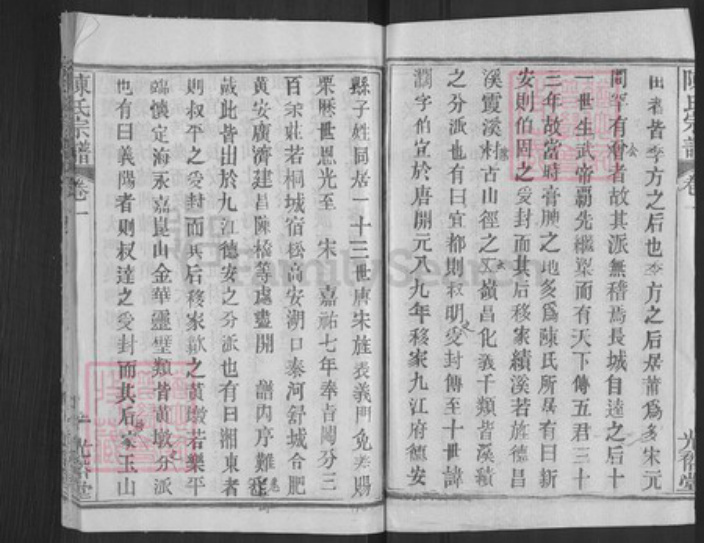 陳氏宗譜
卷一
光裕堂
田者皆李方之后也李方之后居莆爲多宋元
同平有會者故其派無稽焉長城自達之后十
一世生武帝覇先繼梁而有天下傳五君三十
三年故當時膏腴之地多爲陳氏所居有曰新
安則伯固之受封而其后移家績溪若旌德昌
溪霞溪村古山徑之嶺昌化義干類皆溪績
之分派也有曰宜都則叔明受封傳至十世諱
灌字伯宣於唐開元八九年移家九江府德安
縣子姓同居一十三世唐宋旌表義門免差賜
粟歷世恩光至 宋 嘉祐七年奉旨開分三
百余庄若桐城宿松高安湖口泰河舒城合肥
黃安廣濟建昌陳橋等處盡開 譜內序難
哉此皆出於九江德安之分派也有曰湘東者
則叔平之受封而其后移家歙之黃墩若樂平
臨懷定海永嘉崑山金華靈璧類皆黃墩分派
也有曰義陽者則叔達之受封而其后家玉山
陳氏宗譜
卷一
光裕堂
FamilySearch